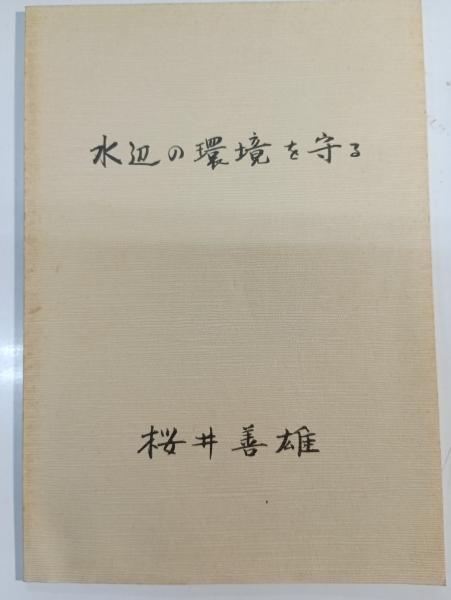 水辺の環境を守る
桜井善雄